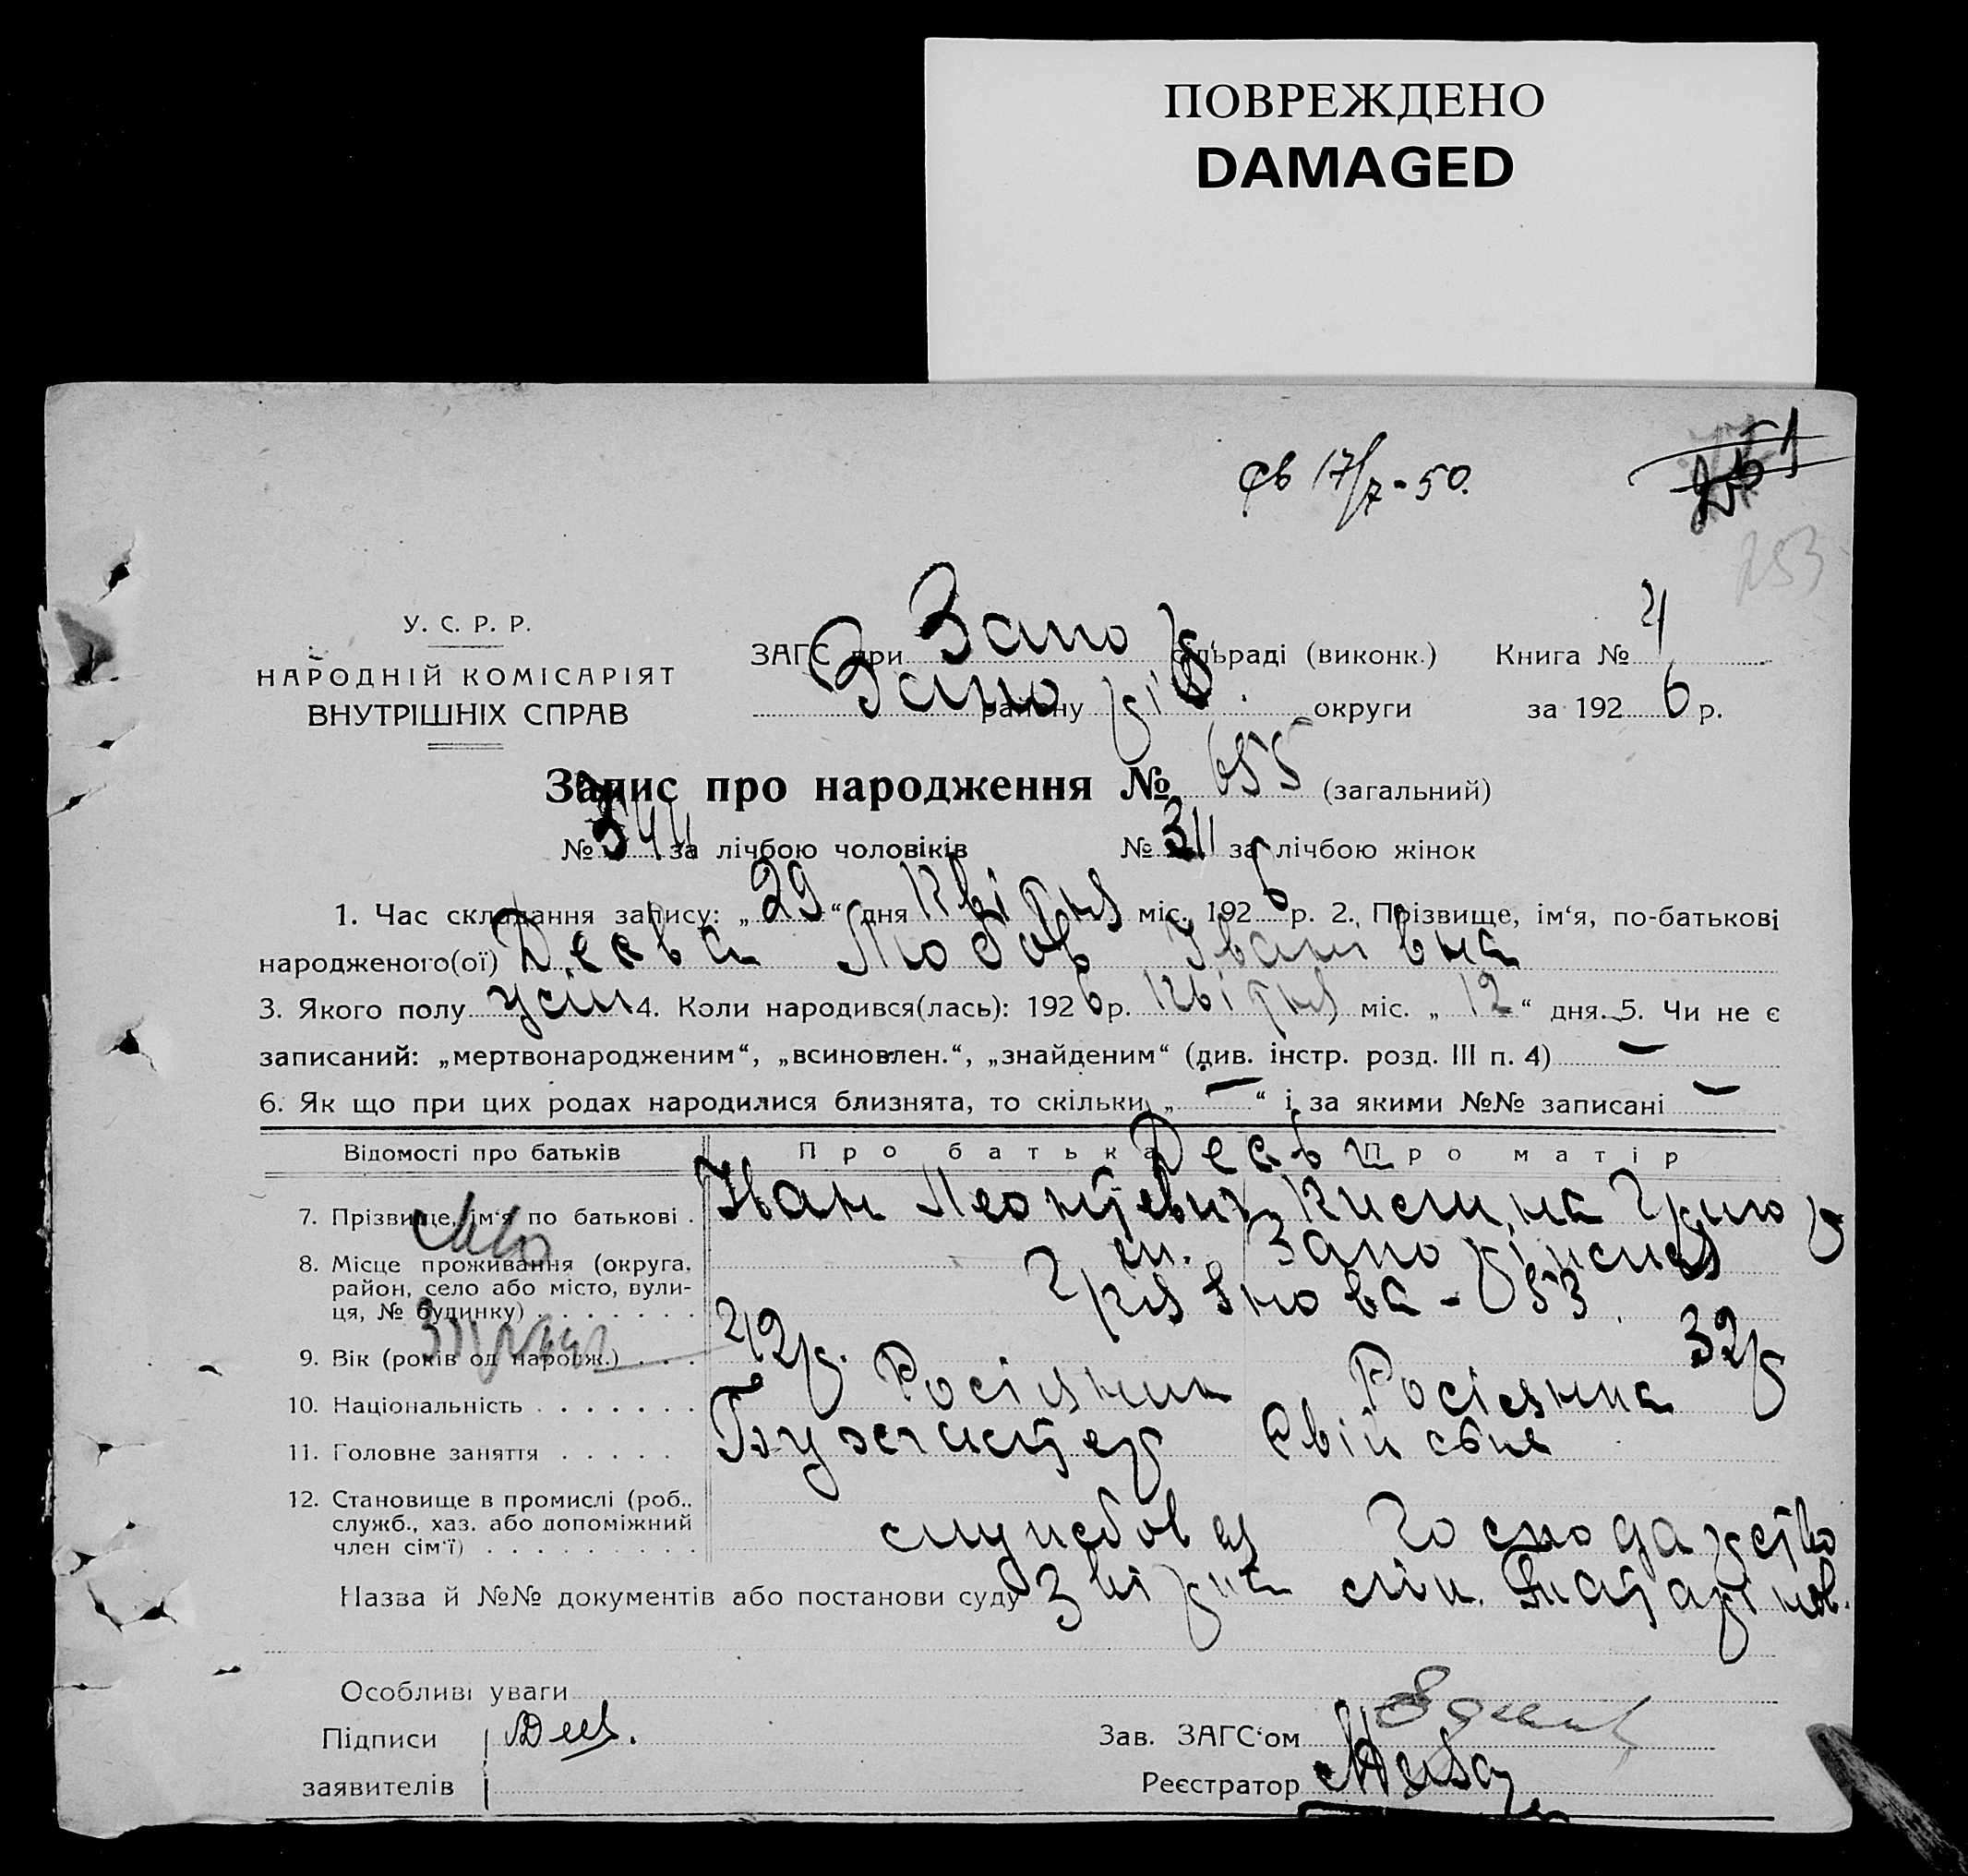 ПОВРЕЖДЕНО
DAMAGED
17/7-50.
253
У. С. Р. Р.
НАРОДНІЙ КОМІСАРІЯТ
ВНУТРІШНІХ СПРАВ
ЗАГС при Запоріз. раді (виконк.) Книга № 4
району Запоріз. округи за 1926 р.
Запис про народження № 655 (загальний)
№ 344 за лічбою чоловіків № 311 за лічбою жінок
1. Час складання запису: „29“ дня квітня міс. 1926 р. 2. Прізвище, ім‘я, по-батькові
народженого(ої) Деєва Любов Іванівна
3. Якого полу жін 4. Коли народився(лась): 1926 р. квітня міс. „12“ дня. 5. Чи не є
записаний: „мертвонародженим“, „всиновлен.“, „знайденим“ (див. інстр. розд. III п. 4) —
6. Як що при цих родах народилися близнята, то скільки „—“ і за якими №№ записані —
Відомості про батьків Про батька Про матір
Деєви
7. Прізвище, ім‘я по батькові . Іван Леонтьевич
8. Місце проживання (округа, м. Запоріжжя
район, село або місто, вули-
ця, № будинку) . . . . . . .
9. Вік (років од народж.) . . . 42р. 32р
10. Національність . . . . . . . Росіянин Росіянка
11. Головне заняття . . . . . Бухгалтер Свійське
12. Становище в промислі (роб.,
служб., хаз. або допоміжний службовец Господарство
член сім‘ї) . . . . . . . . .
Назва й №№ документів або постанови суду
Особливі уваги
Підписи Деев. Зав. ЗАГС‘ом
заявителів Реєстратор